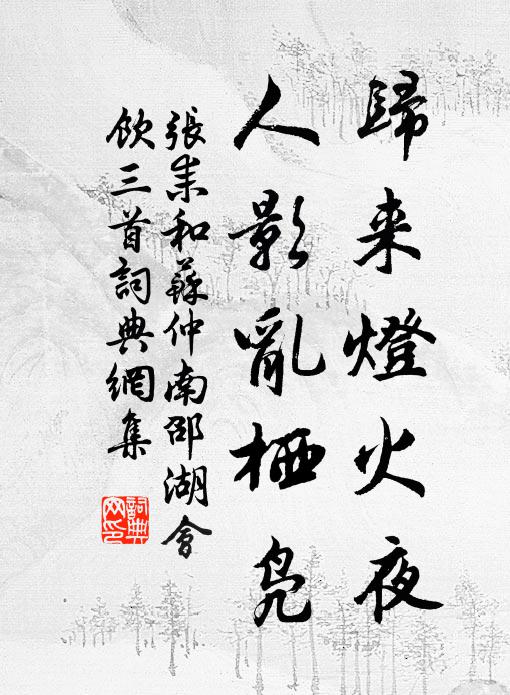 歸来燈火夜
人影亂栖鳧
張耒和蘇仲南邵湖會
飲三首詞典網集
詞典网印